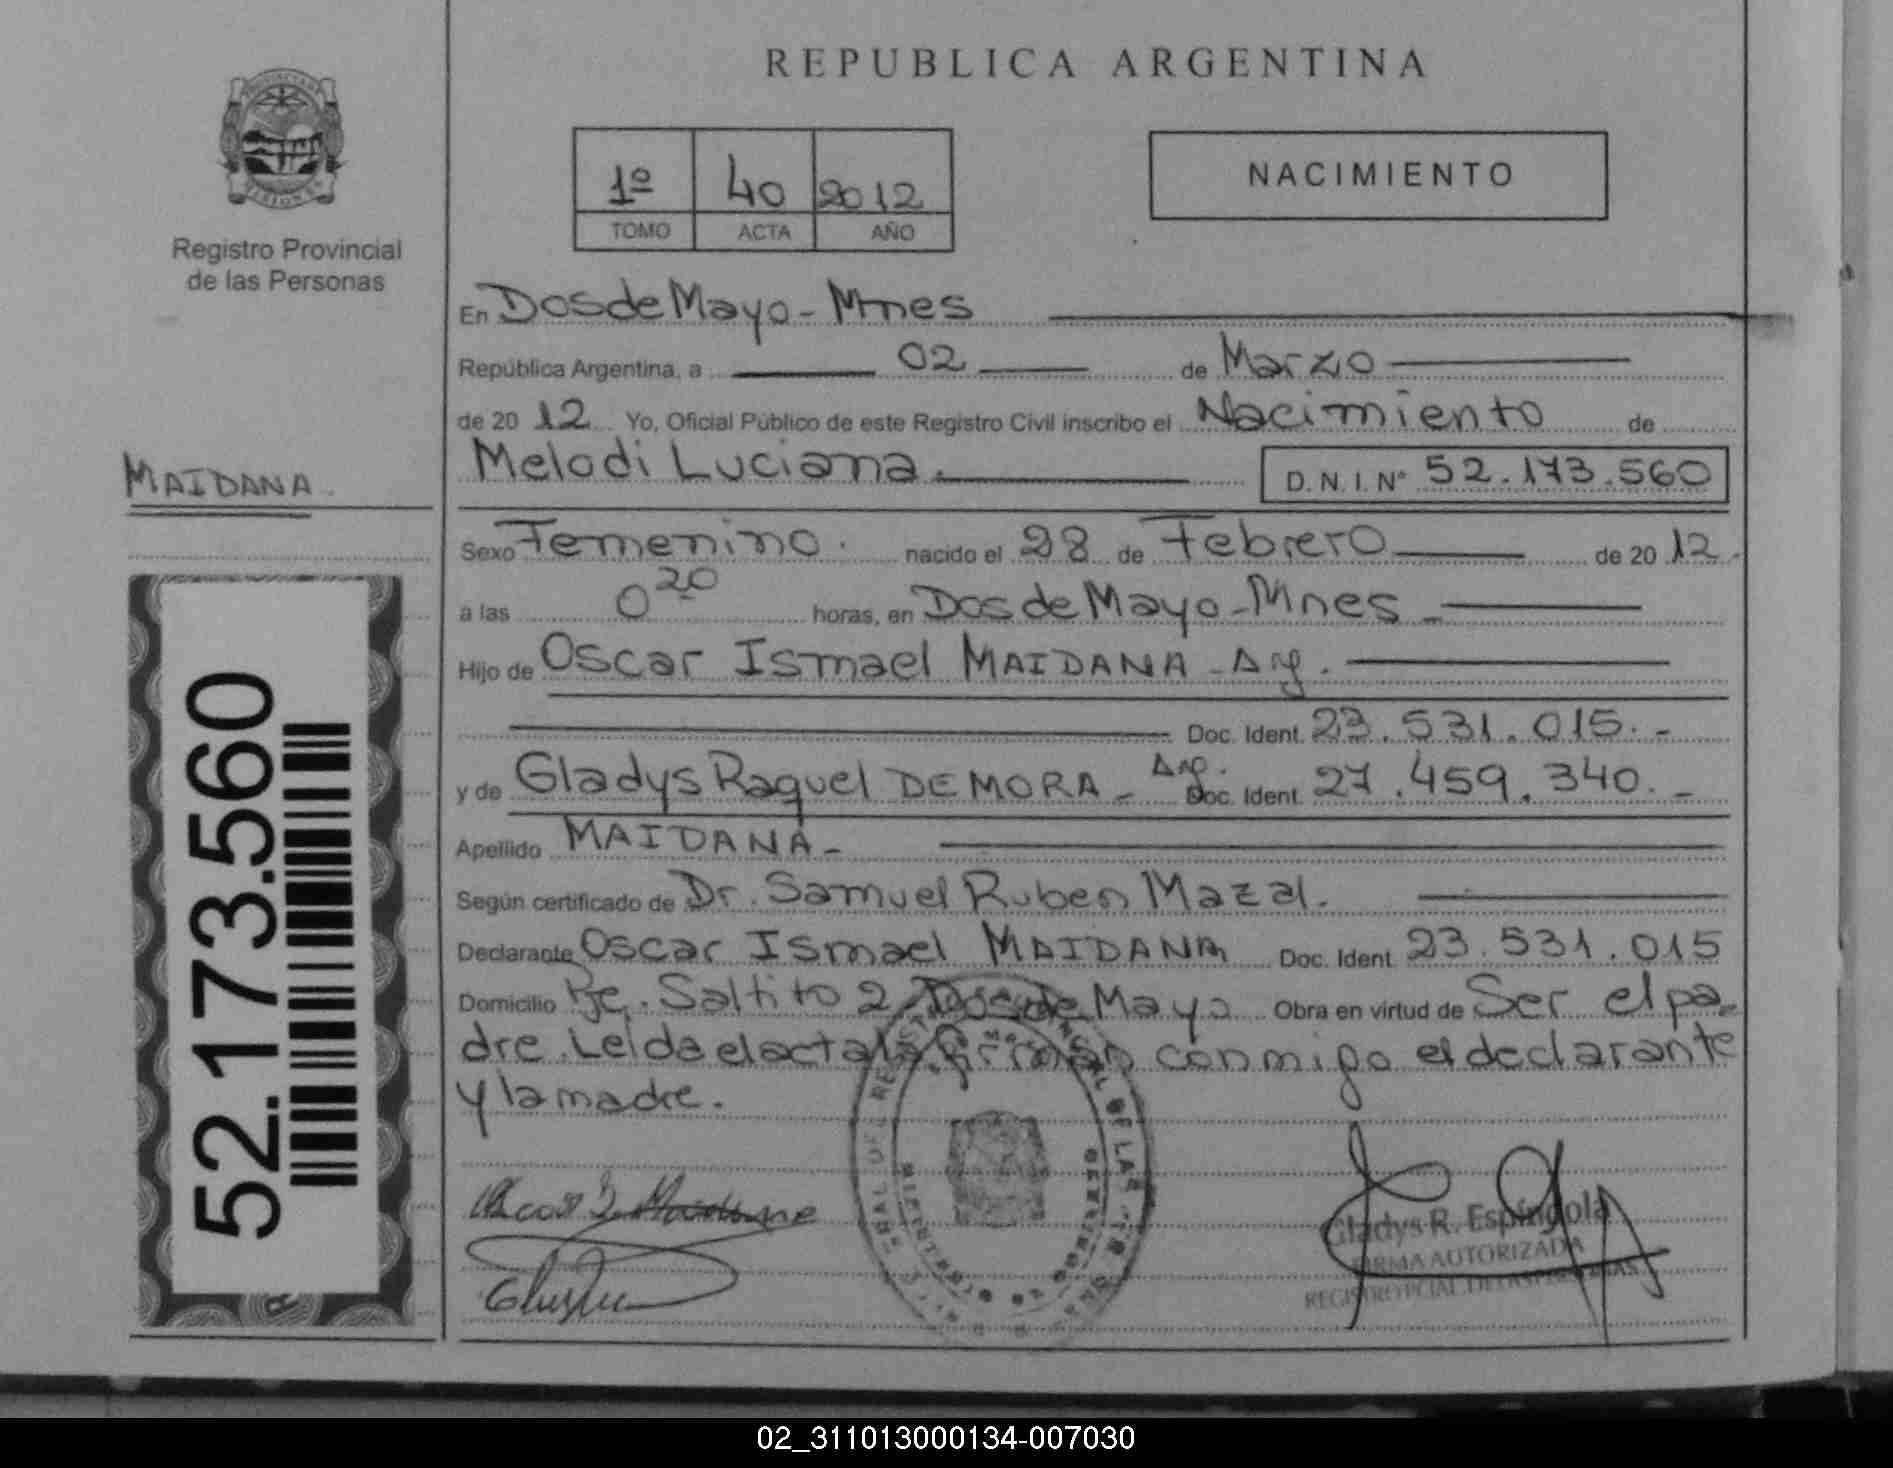 REPUBLICA ARGENTINA
1º 40 2012
TOMO ACTA AÑO
NACIMIENTO
Registro Provincial
de las Personas
En Dos de Mayo - Mnes
República Argentina, a 02 de Marzo
de 20 12 Yo, Oficial Público de este Registro Civil inscribo el Nacimiento de
Melodi Luciana. D.N.I. Nº 52.173.560
MAIDANA
Sexo Femenino. nacido el 28 de Febrero de 20 12.
a las 0 20 horas, en Dos de Mayo - Mnes -
Hijo de Oscar Ismael MAIDANA - Arg.
Doc. Ident. 23.531.015.-
y de Gladys Raquel DE MORA - Arg. Doc. Ident. 27.459.340.-
Apellido MAIDANA -
Según certificado de Dr. Samuel Ruben Mazal.
Declarante Oscar Ismael MAIDANA Doc. Ident. 23.531.015
Domicilio Pje. Saltito 2 Dos de Mayo Obra en virtud de Ser el pa-
dre. Leida el acta la firman conmigo el declarante
y la madre.
52.173.560
Gladys R. Espíndola
FIRMA AUTORIZADA
REGISTRO PCIAL. DE LAS PERSONAS
02_311013000134-007030